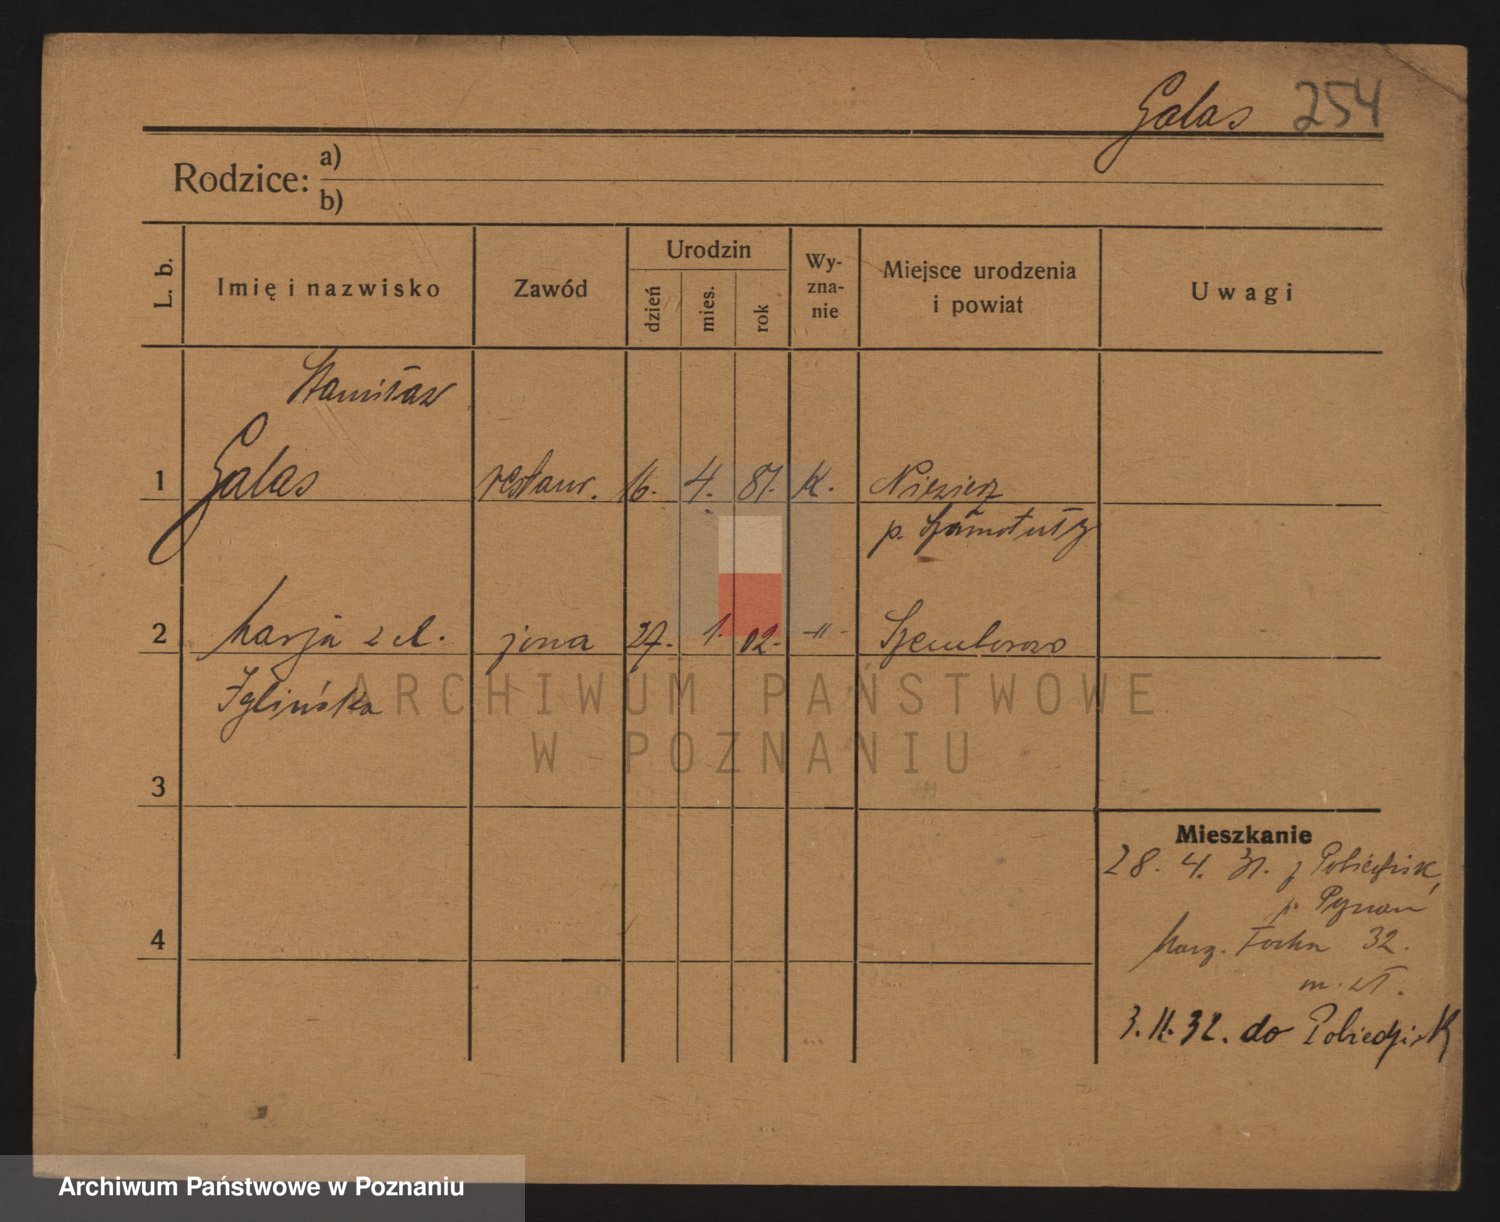 Galas 254
Rodzice: a)
b)
L. b.
Imię i nazwisko
Zawód
Urodzin
dzień
mies.
rok
Wy-
zna-
nie
Miejsce urodzenia
i powiat
Uwagi
Stanisław
1 Galas restaur. 16. 4. 81. K.
p. Szamotuły
2 Marja z d. żona 27. 1. 02. -"-
Iglińska
3
4
Mieszkanie
28. 4. 31. z Pobiedzisk,
p. Poznań
Marsz. Focha 32.
3. 11. 32. do Pobiedzisk
ARCHIWUM PAŃSTWOWE
W POZNANIU
Archiwum Państwowe w Poznaniu